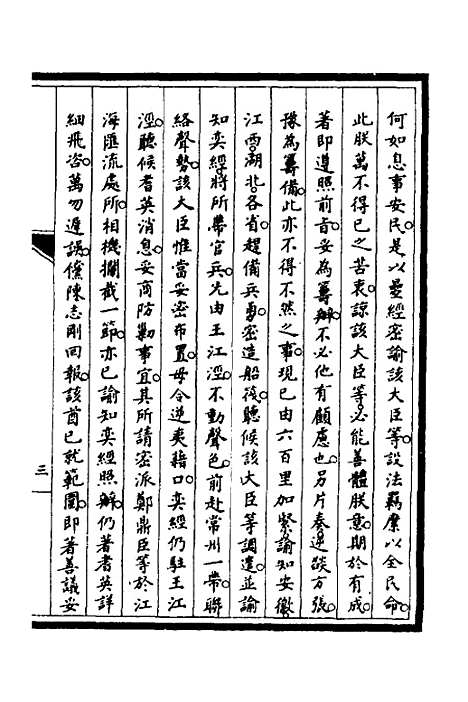 何如息事安民是以曼經密諭該大臣等設法羈縻以全民命
此朕萬不得已之苦衷諒該大臣等必能善體朕意期於有成
著即遵照前旨妥為籌辦不必他有顧慮也另片奏逆燄方張
豫為籌備此亦不得不然之事現已由六百里加緊諭知安徽
江西湖北各省趕備兵勇密造船筏聽候該大臣等調遣並諭
知奕經將所帶官兵先由王江涇不動聲色前赴常州一帶聯
絡聲勢該大臣惟當妥密布置毋令逆夷藉口奕經仍駐王江
涇聽候耆英消息妥商防勦事宜其所請密派鄭鼎臣等於江
海匯流處所相機攔截一節亦已諭知奕經照辦仍著耆英詳
細飛咨萬勿遲誤儻陳志剛回報該酋已就範圍即著善議妥
三